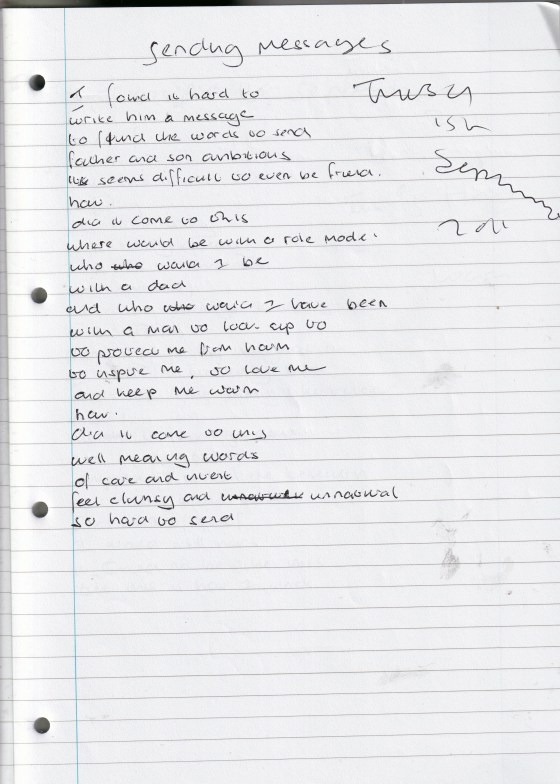 Sending Messages
I found it hard to
write him a message
to find the words to send
father and son ambitious
its seems difficult to even be friend.
how.
did it come to this
where would be with a role model.
who who would I be
with a dad
and who who would I have been
with a man to look up to
to protect me from harm
to inspire me, to love me
and keep me warm
how.
did it come to this
well meaning words
of care and intent
feel clumsy and unnatural
so hard to send
Thursday
15th
2011